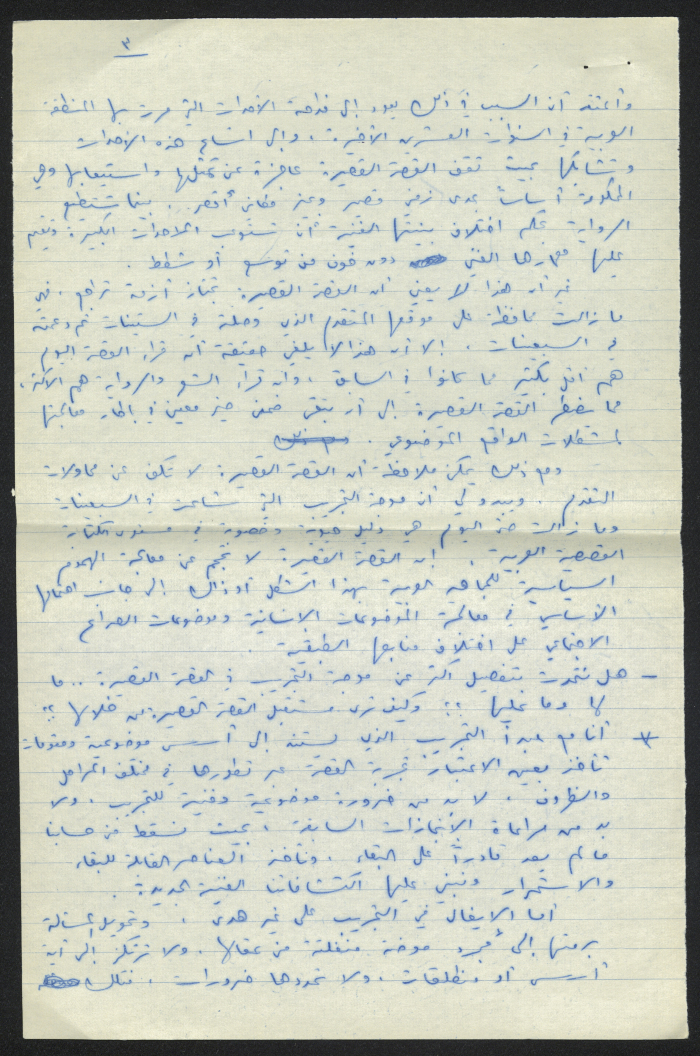 ٣
وأعتقد أن السبب في ذلك يعود إلى فداحة الأحداث التي مرت بها المنطقة
العربية في السنوات العشرين الأخيرة، وإلى اتساع هذه الأحداث
وتشابكها بحيث تقف القصة القصيرة عاجزة عن تمثلها واستيعابها وهي
المحكومة أساساً بمدى زمني قصير وحيز مكاني أقصر.. بينما تستطيع
الرواية بحكم اختلاف بنيتها الفنية أن تستوعب الأحداث الكبيرة وتقيم
عليها معمارها الفني دون خوف من توسع أو شطط.
غير أن هذا لا يعني أن القصة القصيرة تجتاز أزمة تراجع، فهي
ما زالت محافظة على موقعها المتقدم الذي وصلته في الستينات ثم دعمته
في السبعينات. إلا أن هذا لا يلغي حقيقة أن قراء القصة اليوم
هم أقل بكثير مما كانوا في السابق، وأن قراء الشعر والرواية هم الأكثر،
مما يضطر القصة القصيرة إلى أن تبقى ضمن حيز معين في إطار معالجتها
لمشكلات الواقع الموضوعي.
ومع ذلك يمكن ملاحظة أن القصة القصيرة لا تكف عن محاولات
التقدم. ويبدو لي أن موجة التجريب التي شاعت في السبعينات
وما زالت حتى اليوم هي دليل حيوية وخصوبة في مستوى الكتابة
القصصية العربية. إن القصة القصيرة لا تحجم عن معالجة الهموم
السياسية للجماهير العربية بهذا الشكل أو ذاك إلى جانب اهتمامها
الأساسي في معالجة الموضوعات الإنسانية وموضوعات الصراع
الاجتماعي على اختلاف منابعها الطبقية.
- هل نتحدث بتفصيل أكثر عن موجة التجريب في القصة القصيرة.. ما
لها وما عليها؟؟ وكيف ترى مستقبل القصة القصيرة من خلالها؟؟
* أنا مع مبدأ التجريب الذي يستند إلى أسس موضوعية ومقومات
تأخذ بعين الاعتبار تجربة القصة عبر تطورها في مختلف المراحل
والظروف. لا بد من ضرورة موضوعية وفنية للتجريب، ولا
بد من مراعاة الإنجازات السابقة، بحيث نسقط من حسابنا
ما لم يعد قادراً على البقاء، ونأخذ العناصر القابلة للبقاء
والاستمرار ونبني عليها اكتشافاتنا الفنية الجديدة.
أما الإيغال في التجريب على غير هدى، وتحويل المسألة
برمتها إلى مجرد موضة منفلتة من عقالها، ولا ترتكز إلى أية
أسس أو منطلقات، ولا تحددها ضرورات، فتلك